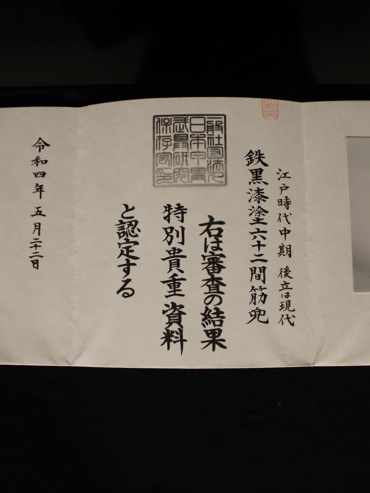 江戸時代中期 後立は現代
鉄黒漆塗六十二間筋兜
右は審査の結果
特別貴重資料
と認定する
令和四年五月二十二日
一般社団法人
日本甲冑
武具研究